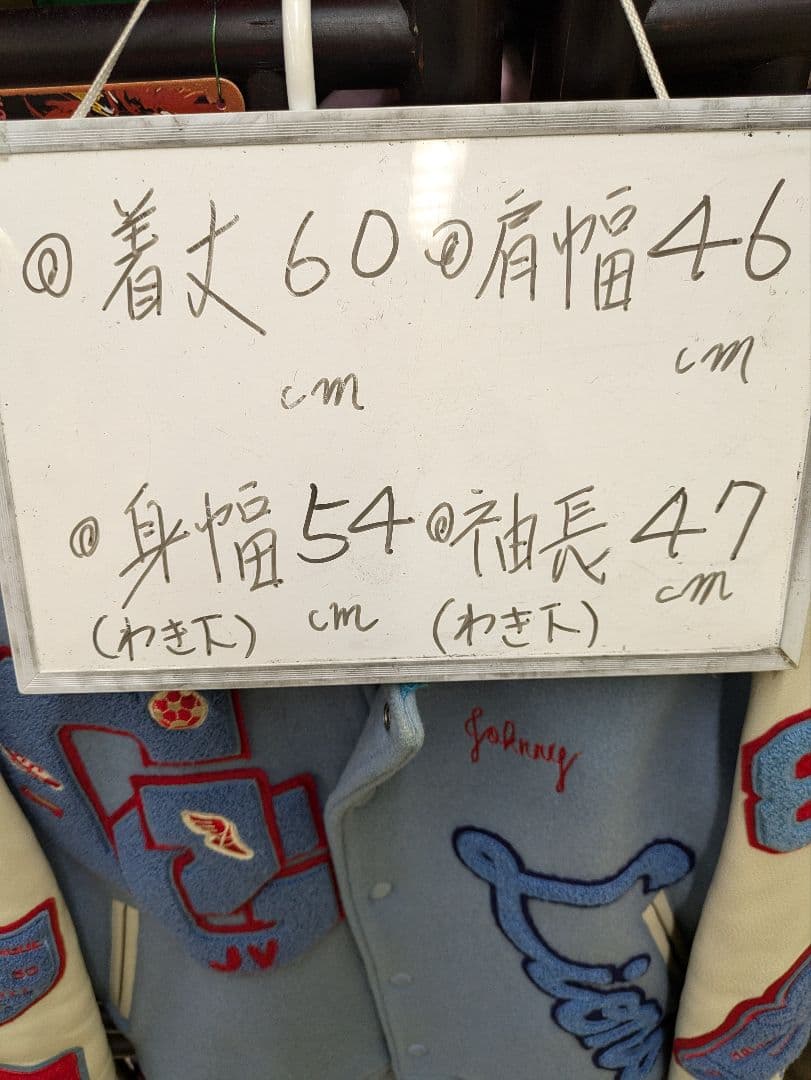 @着丈60cm
@肩幅46cm
@身幅54cm
(わき下)
@袖長47cm
(わき下)
Johnny
JV
Lions
8